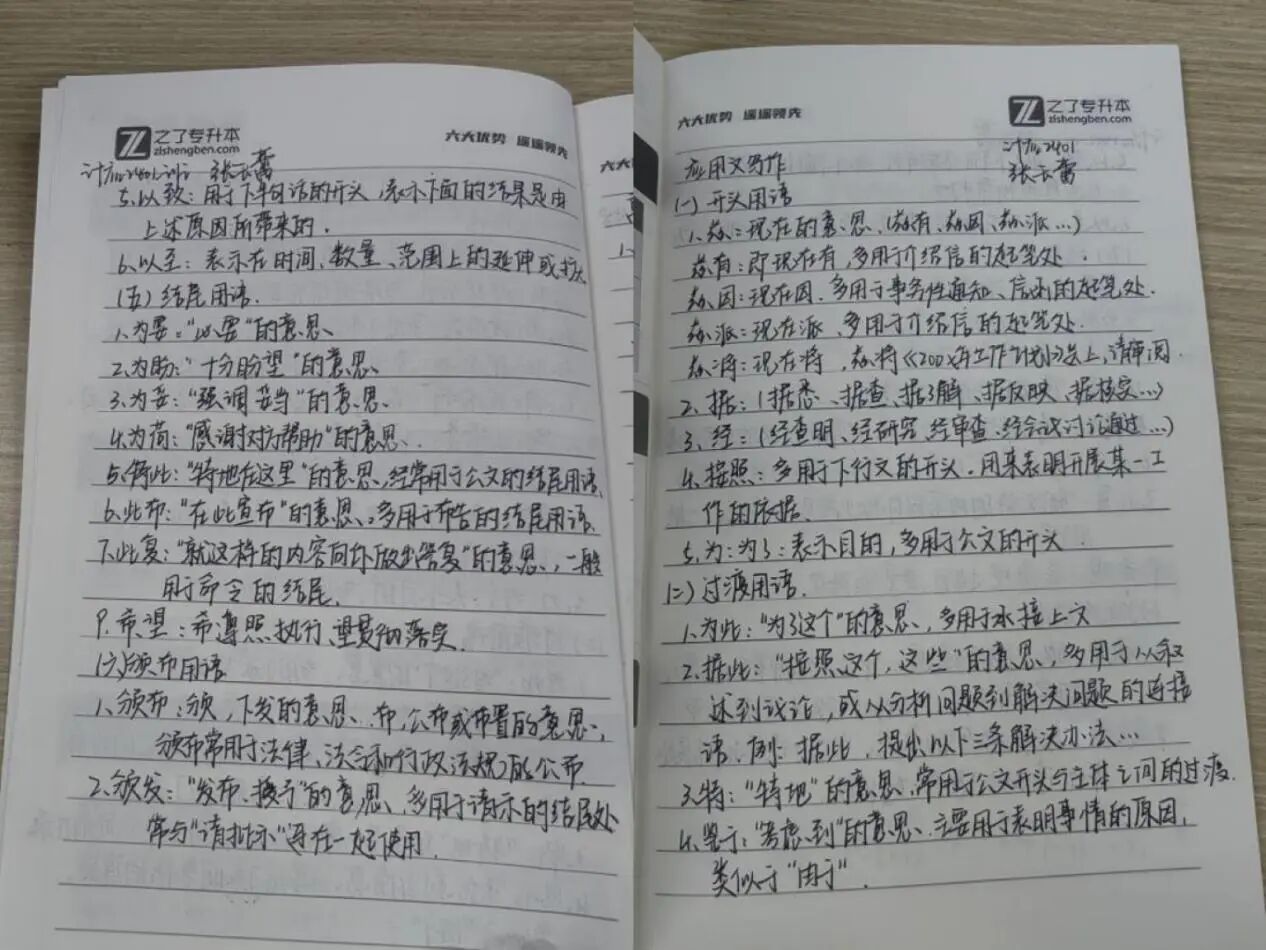 之了专升本
zlshengben.com
六大优势 遥遥领先
张云蕾
5.以致：用于下半句话的开头，表示下面的结果是由
上述原因所带来的.
6.以至：表示在时间、数量、范围上的延伸或扩大
(五)结尾用语.
1.为要："必要"的意思、
2.为盼："十分盼望"的意思、
3.为妥："强调妥当"的意思、
4.为荷："感谢对方帮助"的意思、.
5.特此："特地在这里"的意思，经常用于公文的结尾用语、
6.此布："在此宣布"的意思、，多用于布告的结尾用语、
7.此复："就这样的内容向你做出答复"的意思、，一般
用于命令的结尾、
8.希、望：希遵照执行、望贯彻落实.
(六)颁布用语
1、颁布：颁，下发的意思、布，公布或布置的意思、，
颁布常用于法律、法令和行政法规)的公布.
2、颁发："发布、授予"的意思、多用于请示的结尾处
常与"请批示"连在一起使用.
六大
六大优势 遥遥领先
之了专升本
zlshengben.com
2401
张云蕾
应用文写作
(一)开头用语
1、兹：现在的意思、(兹有、兹因、兹派...)
兹有：即现在有，多用介绍信的起笔处.
兹因：现在因，多用于事务性通知、信函的起笔处.
兹派：现在派，多用于介绍信的起笔处.
兹将：现在将，兹将《200X年工作计划》送上，请审阅.
2、据：(据悉、据查、据了解、据反映、据核实...)
3、经：(经查明、经研究、经审查、经会议讨论通过...)
4、按照：多用于下行文的开头，用来表明开展某一工
作的依据.
5、为：为了：表示目的，多用于公文的开头
(二)过渡用语.
1、为此："为了这个"的意思、，多用于承接上文
2、据此："按照这个，这些"的意思，多用于从叙
述到议论，或从分析问题到解决问题的连接
语.例：据此，提出以下三条解决办法...
3、特："特地"的意思、常用于公文开头与主体之间的过渡.
4、鉴于："考虑到"的意思、主要用于表明事情的原因，
类似于"由于".